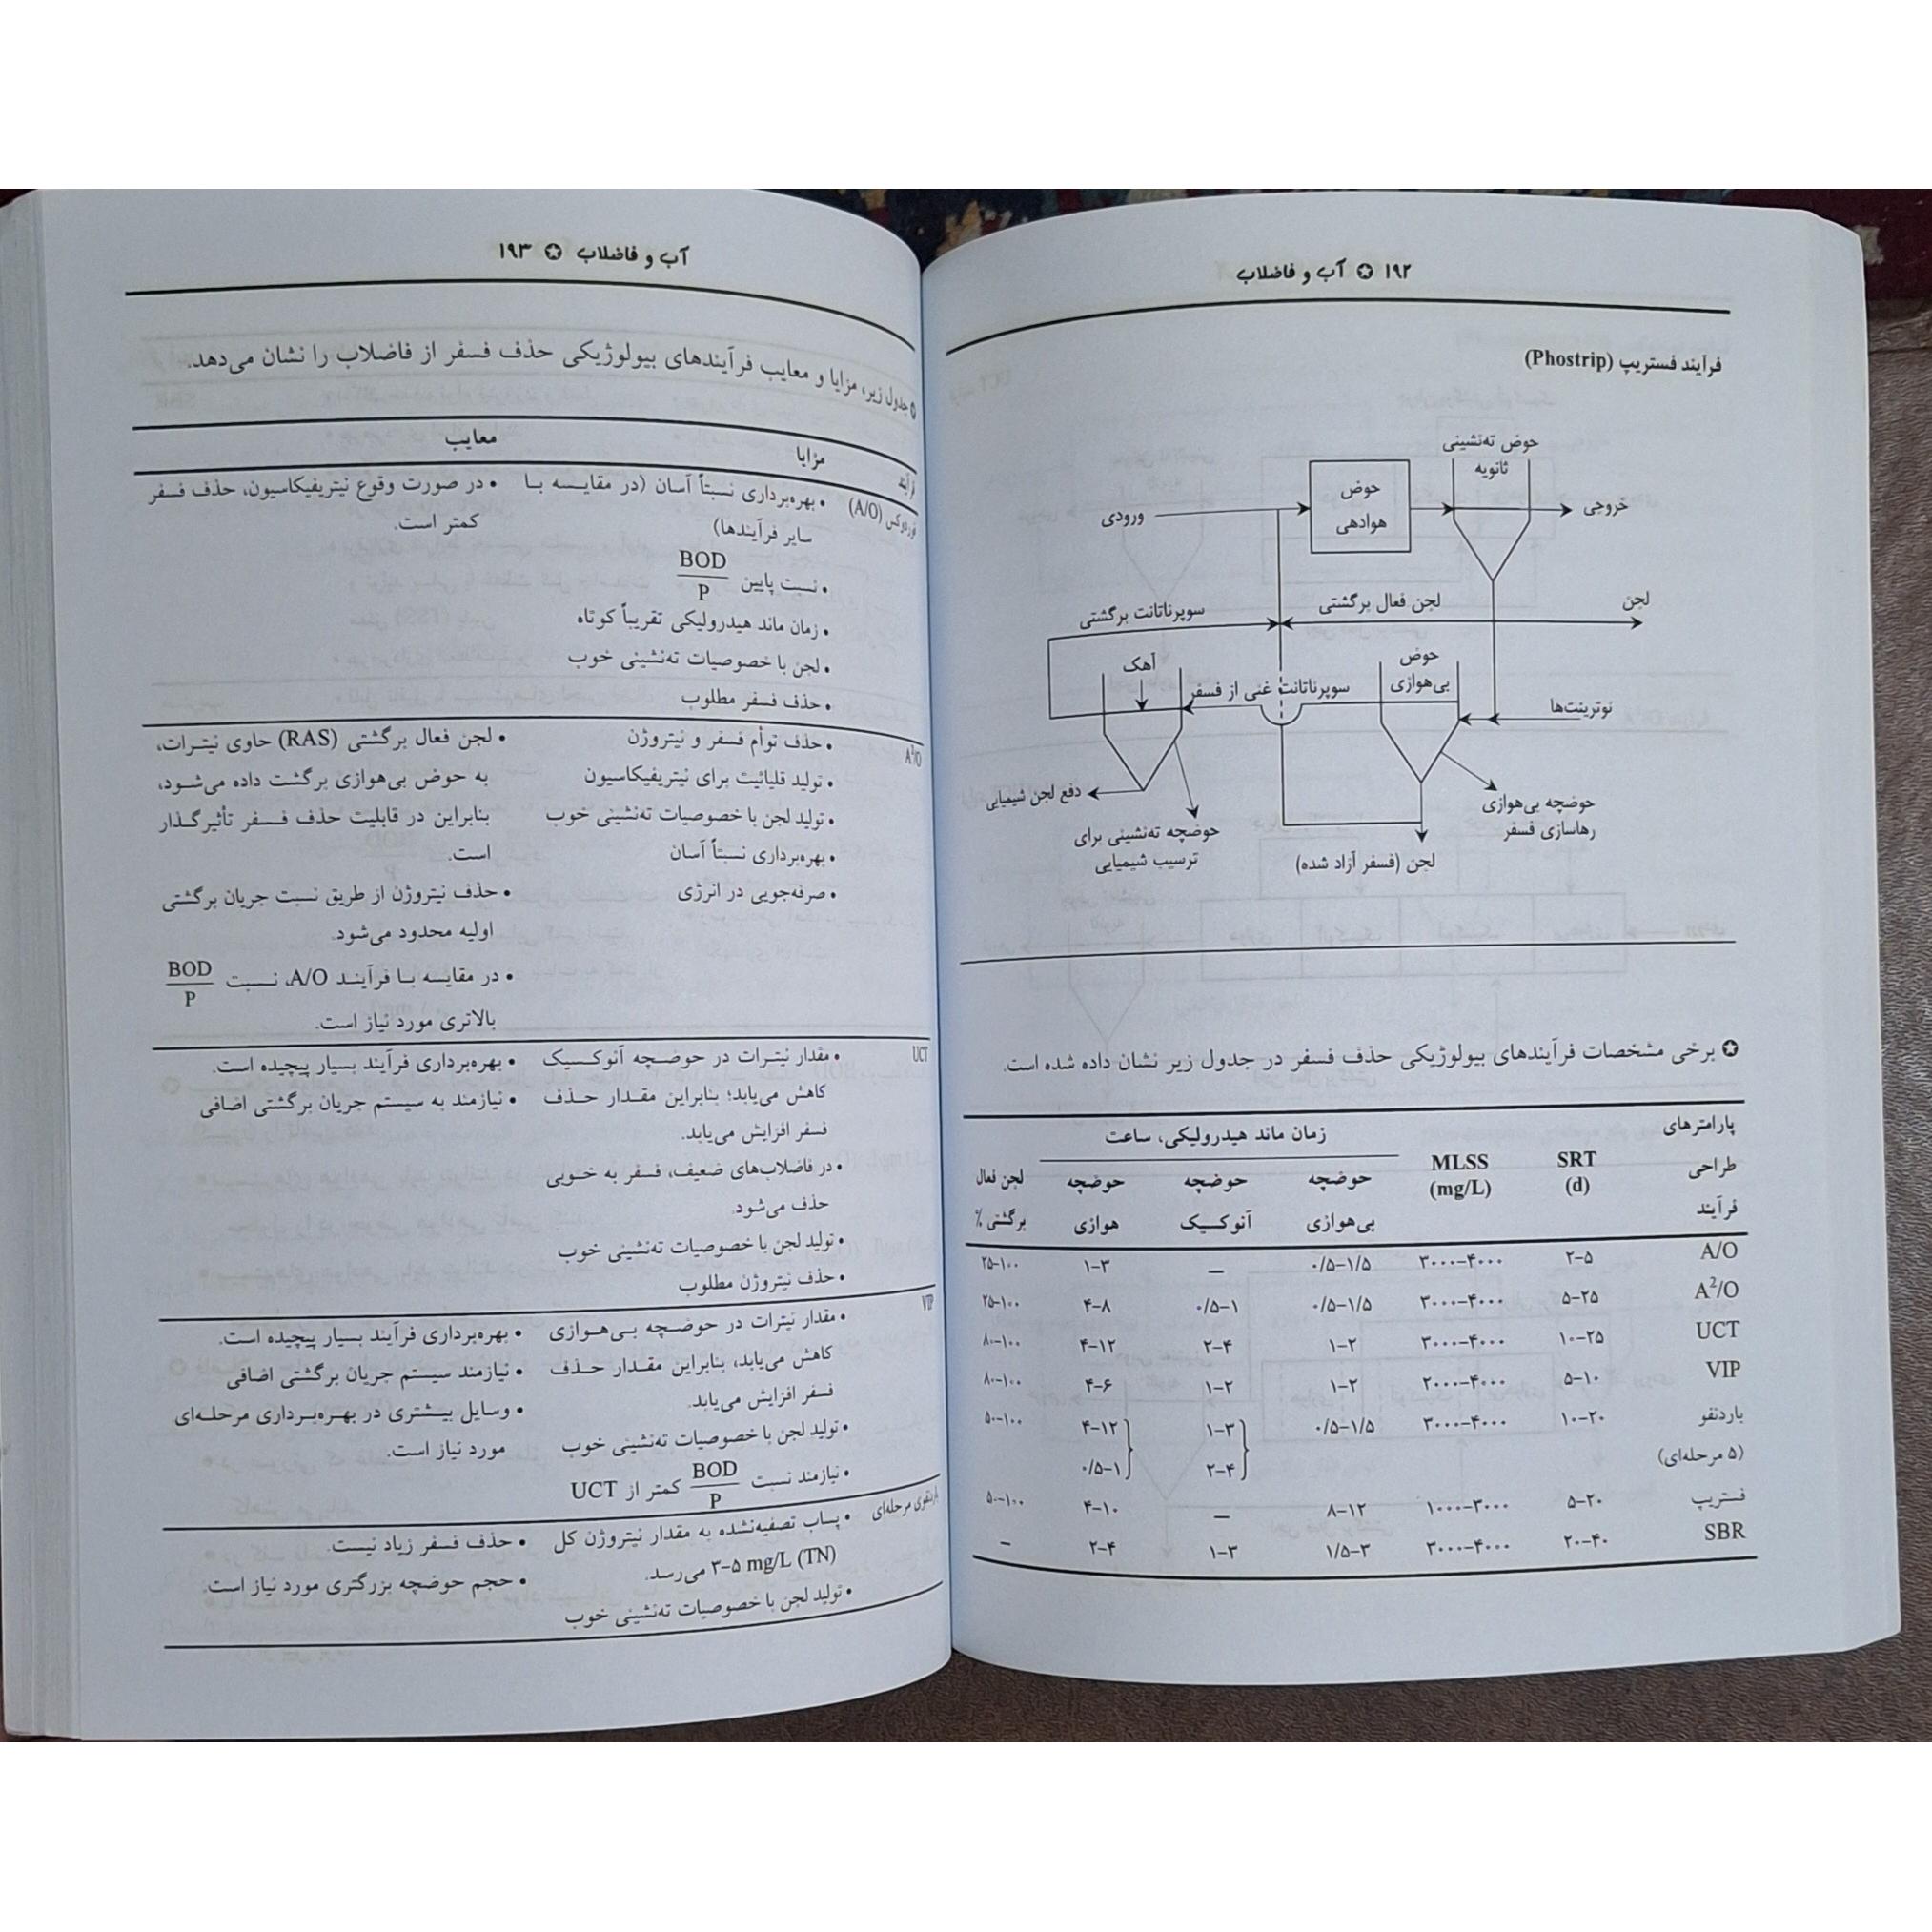 ۱۹۲ ✪ آب و فاضلاب
فرآیند فستریپ (Phostrip)
حوض ته‌نشینی
ثانویه
حوض
هوادهی
ورودی
خروجی
سوپرناتانت برگشتی
لجن فعال برگشتی
لجن
آهک
حوض
بی‌هوازی
سوپرناتانت غنی از فسفر
نوترینت‌ها
دفع لجن شیمیایی
حوضچه ته‌نشینی برای
ترسیب شیمیایی
لجن (فسفر آزاد شده)
حوضچه بی‌هوازی
رهاسازی فسفر
✪ برخی مشخصات فرآیندهای بیولوژیکی حذف فسفر در جدول زیر نشان داده شده است.
پارامترهای
طراحی
فرآیند
SRT
(d)
MLSS
(mg/L)
زمان ماند هیدرولیکی، ساعت
حوضچه
بی‌هوازی
حوضچه
آنوکسیک
حوضچه
هوازی
لجن فعال
برگشتی %
A/O ۲-۵ ۳۰۰۰-۴۰۰۰ ۰/۵-۱/۵ — ۱-۳ ۲۵-۱۰۰
A²/O ۵-۲۵ ۳۰۰۰-۴۰۰۰ ۰/۵-۱/۵ ۰/۵-۱ ۴-۸ ۲۵-۱۰۰
UCT ۱۰-۲۵ ۳۰۰۰-۴۰۰۰ ۱-۲ ۲-۴ ۴-۱۲ ۸۰-۱۰۰
VIP ۵-۱۰ ۲۰۰۰-۴۰۰۰ ۱-۲ ۱-۲ ۴-۶ ۸۰-۱۰۰
باردنفو ۱۰-۲۰ ۳۰۰۰-۴۰۰۰ ۰/۵-۱/۵ ۱-۳ ۴-۱۲ ۵۰-۱۰۰
(۵ مرحله‌ای) ۲-۴ ۰/۵-۱
فستریپ ۵-۲۰ ۱۰۰۰-۳۰۰۰ ۸-۱۲ — ۴-۱۰ ۵۰-۱۰۰
SBR ۲۰-۴۰ ۳۰۰۰-۴۰۰۰ ۱/۵-۳ ۱-۳ ۲-۴ —
آب و فاضلاب ✪ ۱۹۳
✪ جدول زیر، مزایا و معایب فرآیندهای بیولوژیکی حذف فسفر از فاضلاب را نشان می‌دهد.
فرآیند مزایا معایب
فوردوکس (A/O)
• بهره‌برداری نسبتاً آسان (در مقایسه با
سایر فرآیندها)
• نسبت پایین BOD/P
• زمان ماند هیدرولیکی تقریباً کوتاه
• لجن با خصوصیات ته‌نشینی خوب
• حذف فسفر مطلوب
• در صورت وقوع نیتریفیکاسیون، حذف فسفر
کمتر است.
A²/O
• حذف توأم فسفر و نیتروژن
• تولید قلیائیت برای نیتریفیکاسیون
• تولید لجن با خصوصیات ته‌نشینی خوب
• بهره‌برداری نسبتاً آسان
• صرفه‌جویی در انرژی
• لجن فعال برگشتی (RAS) حاوی نیترات،
به حوض بی‌هوازی برگشت داده می‌شود،
بنابراین در قابلیت حذف فسفر تأثیرگذار
است.
• حذف نیتروژن از طریق نسبت جریان برگشتی
اولیه محدود می‌شود.
• در مقایسه با فرآیند A/O، نسبت BOD/P
بالاتری مورد نیاز است.
UCT
• مقدار نیترات در حوضچه آنوکسیک
کاهش می‌یابد؛ بنابراین مقدار حذف
فسفر افزایش می‌یابد.
• در فاضلاب‌های ضعیف، فسفر به خوبی
حذف می‌شود.
• تولید لجن با خصوصیات ته‌نشینی خوب
• حذف نیتروژن مطلوب
• بهره‌برداری فرآیند بسیار پیچیده است.
• نیازمند به سیستم جریان برگشتی اضافی
VIP
• مقدار نیترات در حوضچه بی‌هوازی
کاهش می‌یابد، بنابراین مقدار حذف
فسفر افزایش می‌یابد.
• تولید لجن با خصوصیات ته‌نشینی خوب
• نیازمند نسبت BOD/P کمتر از UCT
• بهره‌برداری فرآیند بسیار پیچیده است.
• نیازمند سیستم جریان برگشتی اضافی
• وسایل بیشتری در بهره‌برداری مرحله‌ای
مورد نیاز است.
باردنفوی مرحله‌ای
• پساب تصفیه‌نشده به مقدار نیتروژن کل
(TN) ۳-۵ mg/L می‌رسد.
• تولید لجن با خصوصیات ته‌نشینی خوب
• حذف فسفر زیاد نیست.
• حجم حوضچه بزرگتری مورد نیاز است.